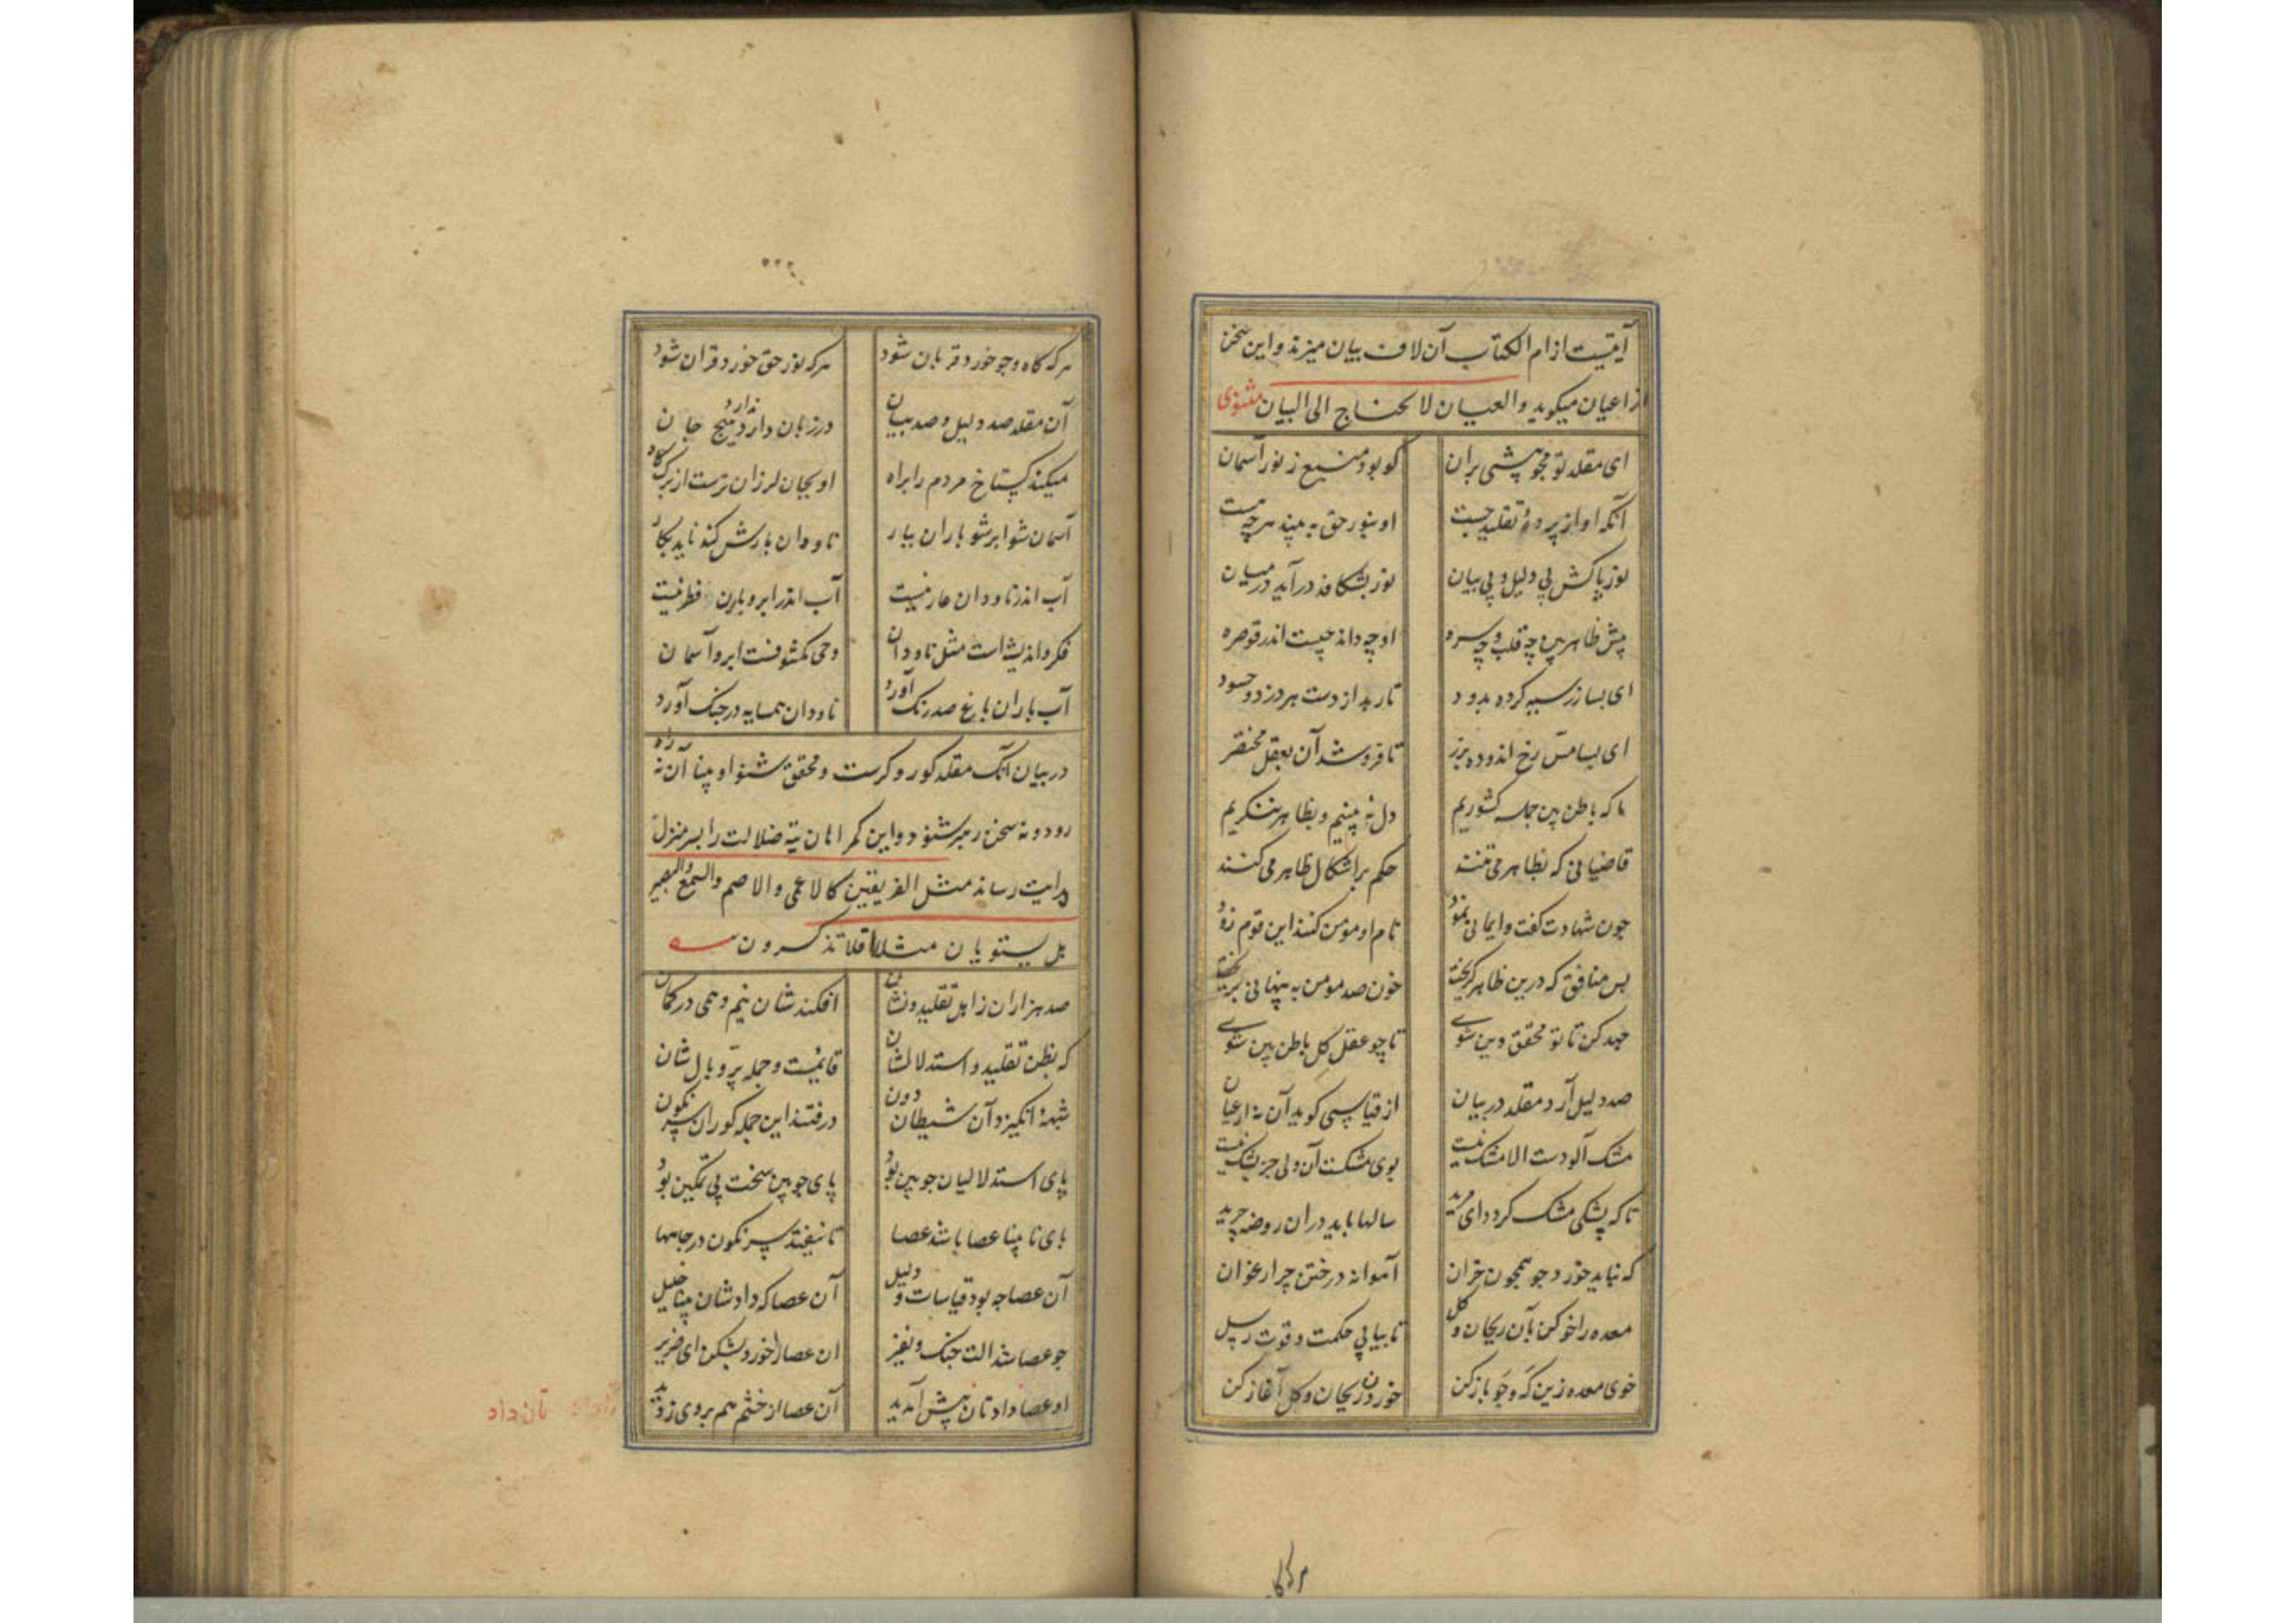 آیتیست از ام الکتاب آن لاف بیان میزند و این سخن
از اعیان میکوید و العیان لا یحتاج الی البیان مثنوی
ای مقلد تو مجو پیشی بران کو بود منبع ز نور آسمان
آنکه او از پردهٔ تقلید جست او بنور حق به بیند هر چه هست
نور پاکش بی دلیل و بی بیان نور بشکافد درآید در میان
پیش ظاهربین چه قلب و چه سره او چه داند چیست اندر قوصره
ای بسا زر سیه کرده بدود تا رهد از دست هر دزد و حسود
ای بسا مس رخ اندوده بزر تا فروشد آن بعقل مختصر
ما که باطن بین جمله کشوریم دل به بینیم و بظاهر ننکریم
قاضیانی که بظاهر می تنند حکم بر اشکال ظاهر می کنند
چون شهادت کفت و ایمانی نمود نام او مومن کنند این قوم زود
بس منافق که درین ظاهر کریخت خون صد مومن به پنهانی بریخت
جهد کن تا تو محقق دین شوی تا چو عقل کل باطن بین شوی
صد دلیل آرد مقلد در بیان از قیاسی کوید آن نه از عیان
مشک آلودست الا مشک نیست بوی مشکست آن ولی جز پشک نیست
تا که پشکی مشک کردد ای مرید سالها باید در ان روضه چرید
که نباید خورد جو همچون خران آهوانه در ختن چر ارغوان
معده را خو کن بآن ریحان و کل تا بیابی حکمت و قوت رسل
خوی معده زین که و جو باز کن خوردن ریحان و کل آغاز کن
هر که کا
۲۲۲
هر که کاه و جو خورد قربان شود هر که نور حق خورد قران شود
آن مقلد صد دلیل و صد بیان در زبان دارد ندارد هیچ جان
میکند کستاخ مردم را براه او بجان لرزان ترست از برک کاه
آسمان شو ابر شو باران ببار ناودان بارش کند ناید بکار
آب اندر ناودان عاریتیست آب اندر ابر و باران فطرتیست
فکر و اندیشه است مثل ناودان وحی مکشوفست ابر و آسمان
آب باران باغ صد رنک آورد ناودان همسایه در جنک آورد
در بیان آنک مقلد کور و کرست و محقق شنوا و بینا آن نه راه
رود و نه سخن رهبر شنود و این کمراهان تیه ضلالت را بسرمنزل
هدایت رساند مثل الفریقین کالاعمی و الاصم و السمیع و البصیر
هل یستویان مثلا افلا تذکرون
صد هزاران ز اهل تقلید و نشان افکند شان نیم وهمی در کمان
که بظن تقلید و استدلالشان قائمیست و جمله پر و بال شان
شبههٔ انکیزد آن شیطان دون در فتند این جمله کوران سرنکون
پای استدلالیان چوبین بود پای چوبین سخت بی تمکین بود
پای نابینا عصا باشد عصا تا نیفتد سرنکون در چاهها
آن عصا چه بود قیاسات و دلیل آن عصا که داد شان بینا جلیل
چو عصا شد الت جنک و نفیر ان عصا را خورد بشکن ای ضریر
او عصا داد تان پیش آمدید آن عصا از خشم هم بر وی زدید
تان داد